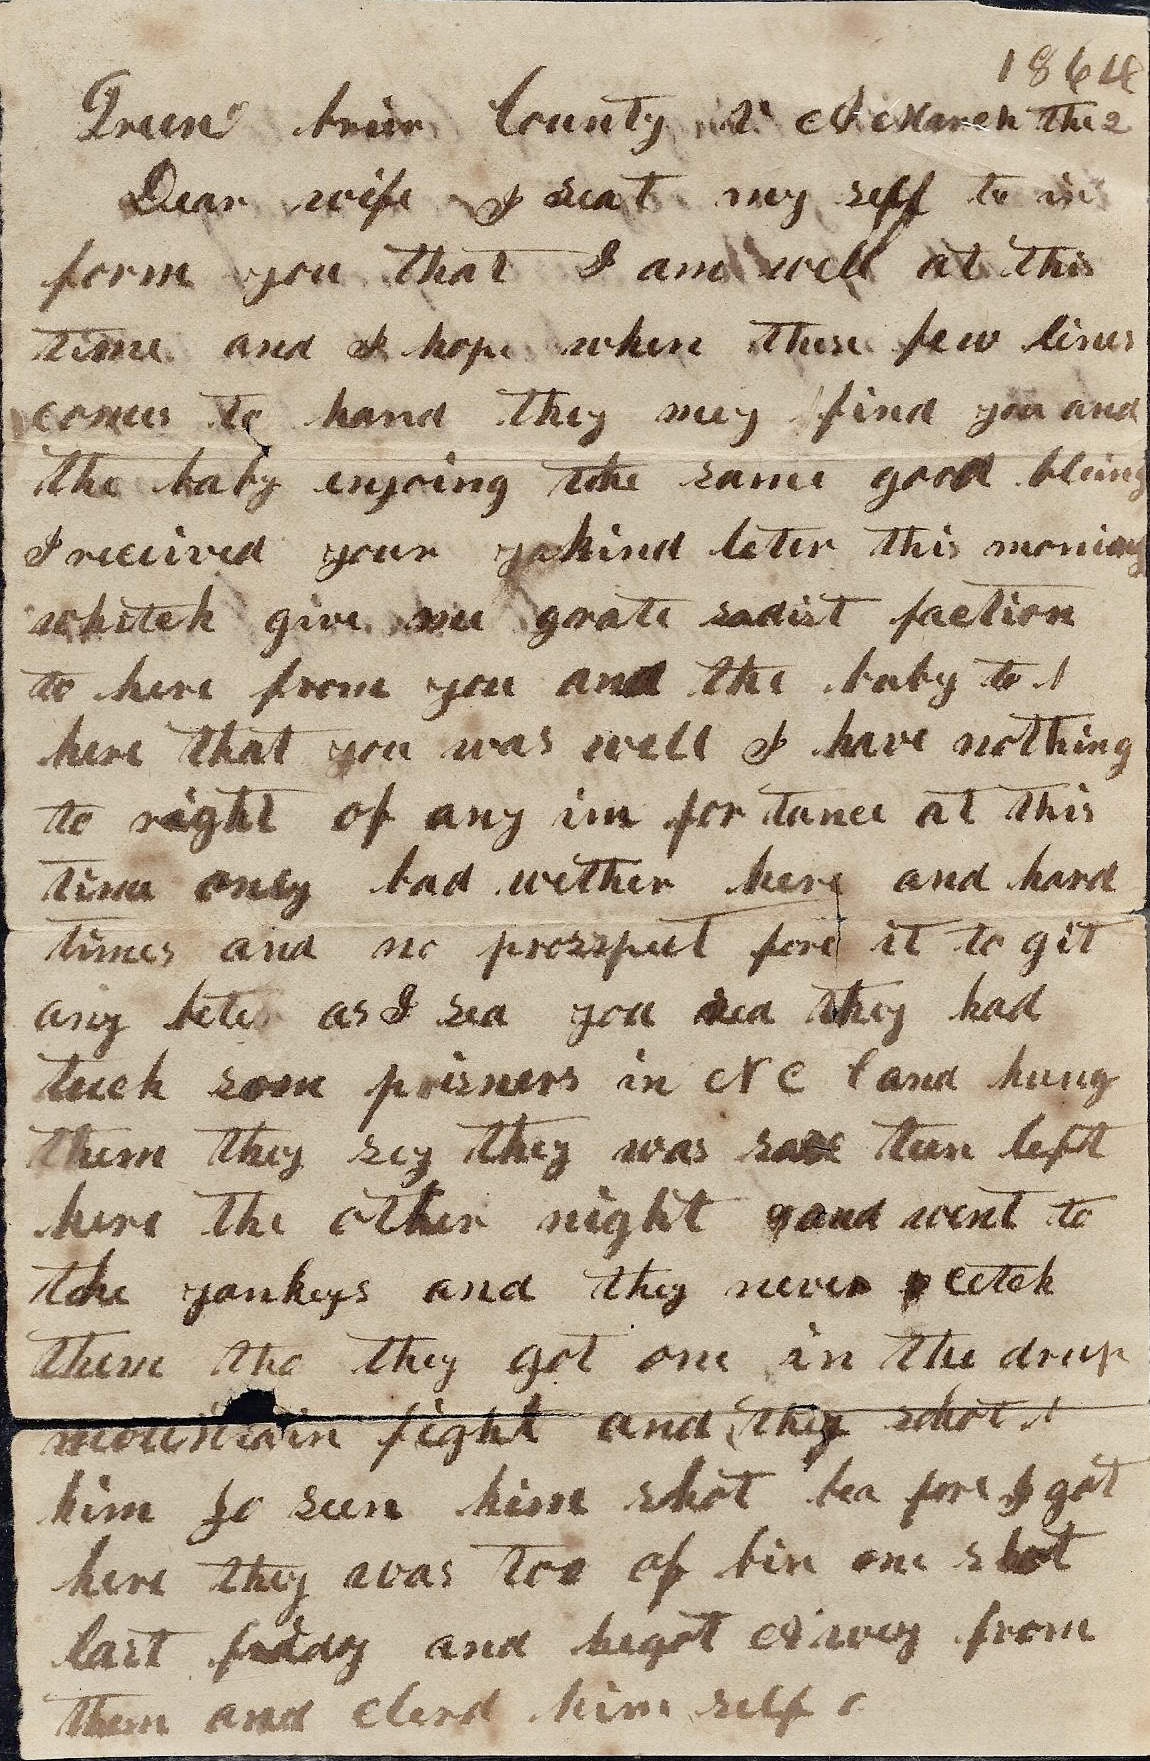 1864
Green brier County V A March the 2
Dear wife I seat my self to in
form you that I am well at this
time and I hope when these few lines
comes to hand they mey find you and
the baby enjoing the same good bleing
I received your kind leter this moning
whitch give me grate sadist faction
to here from you and the baby to
here that you was well I have nothing
to right of any im por tance at this
time only bad wether here and hard
times and no prosspect fore it to git
any beter as I sea you sed they had
tuck som prisners in N C and hung
them they sey they was teen left
here the other night and went to
the yankeys and they never cetch
them tho they got one in the drup
mountain fight and they shot
him Jo seen him shot bea fore I got
here they was too of bin one shot
last friday and he got A wey from
them and clerd him self